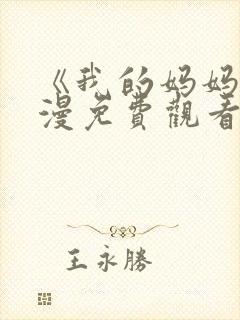 《我的妈妈
漫免費觀看
王永勝